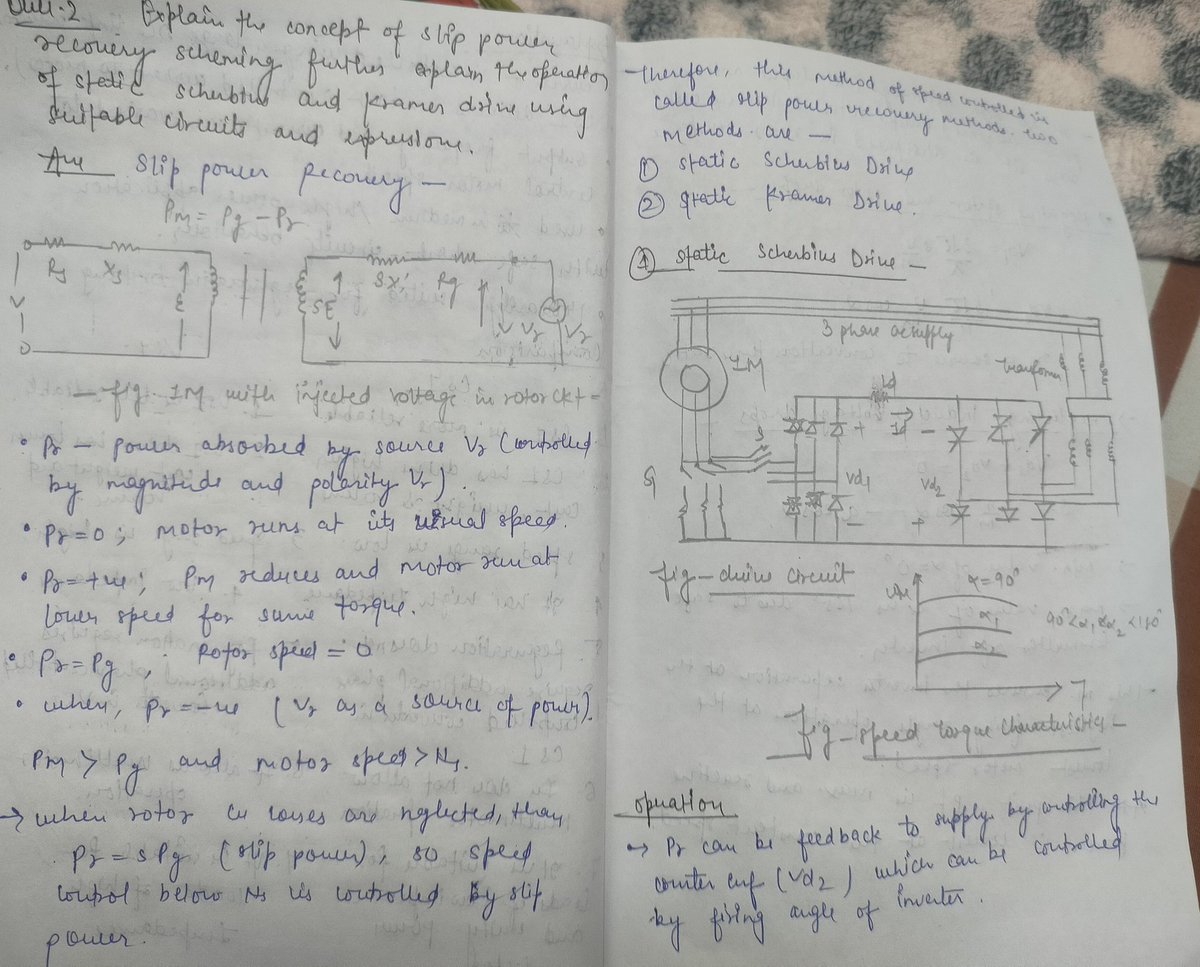 Explain the concept of slip power
recovery scheming further explain the operation
of static scherbius and kramer drive using
suitable circuits and expressions.
Ans Slip power Recovery —
Pm = Pg - Pr
Rs Xs
V E
SE SX' Vr Vr
— fig - IM with injected voltage in rotor ckt =
• Pr — power absorbed by source Vr (controlled
by magnitude and polarity Vr).
• Pr = 0 ; motor runs at its usual speed.
• Pr = +ve ; Pm reduces and motor run at
lower speed for same torque.
• Pr = Pg , Rotor speed = 0
• when, Pr = -ve ( Vr as a source of power).
Pm > Pg and motor speed > Ns.
→ when rotor cu losses are neglected, than
Pr = sPg (slip power), so speed
control below Ns is controlled by slip
power.
— Therefore, this method of speed controlled is
called slip power recovery methods. two
methods are —
① static Scherbius Drive
② static Kramer Drive.
① static Scherbius Drive —
3 phase ac supply
IM
Ld transformer
+ Id —
S1 Vd1 Vd2
— +
fig — drive circuit
α = 90°
α1 90° < α1 < α2 < 180°
α2
T
fig — speed torque characteristics —
operation
→ Pr can be feedback to supply by controlling the
counter emf (Vd2) which can be controlled
by firing angle of inverter.